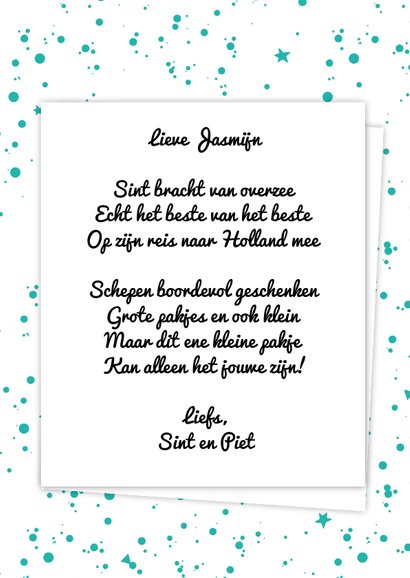 Lieve Jasmijn
Sint bracht van overzee
Echt het beste van het beste
Op zijn reis naar Holland mee
Schepen boordevol geschenken
Grote pakjes en ook klein
Maar dit ene kleine pakje
Kan alleen het jouwe zijn!
Liefs,
Sint en Piet